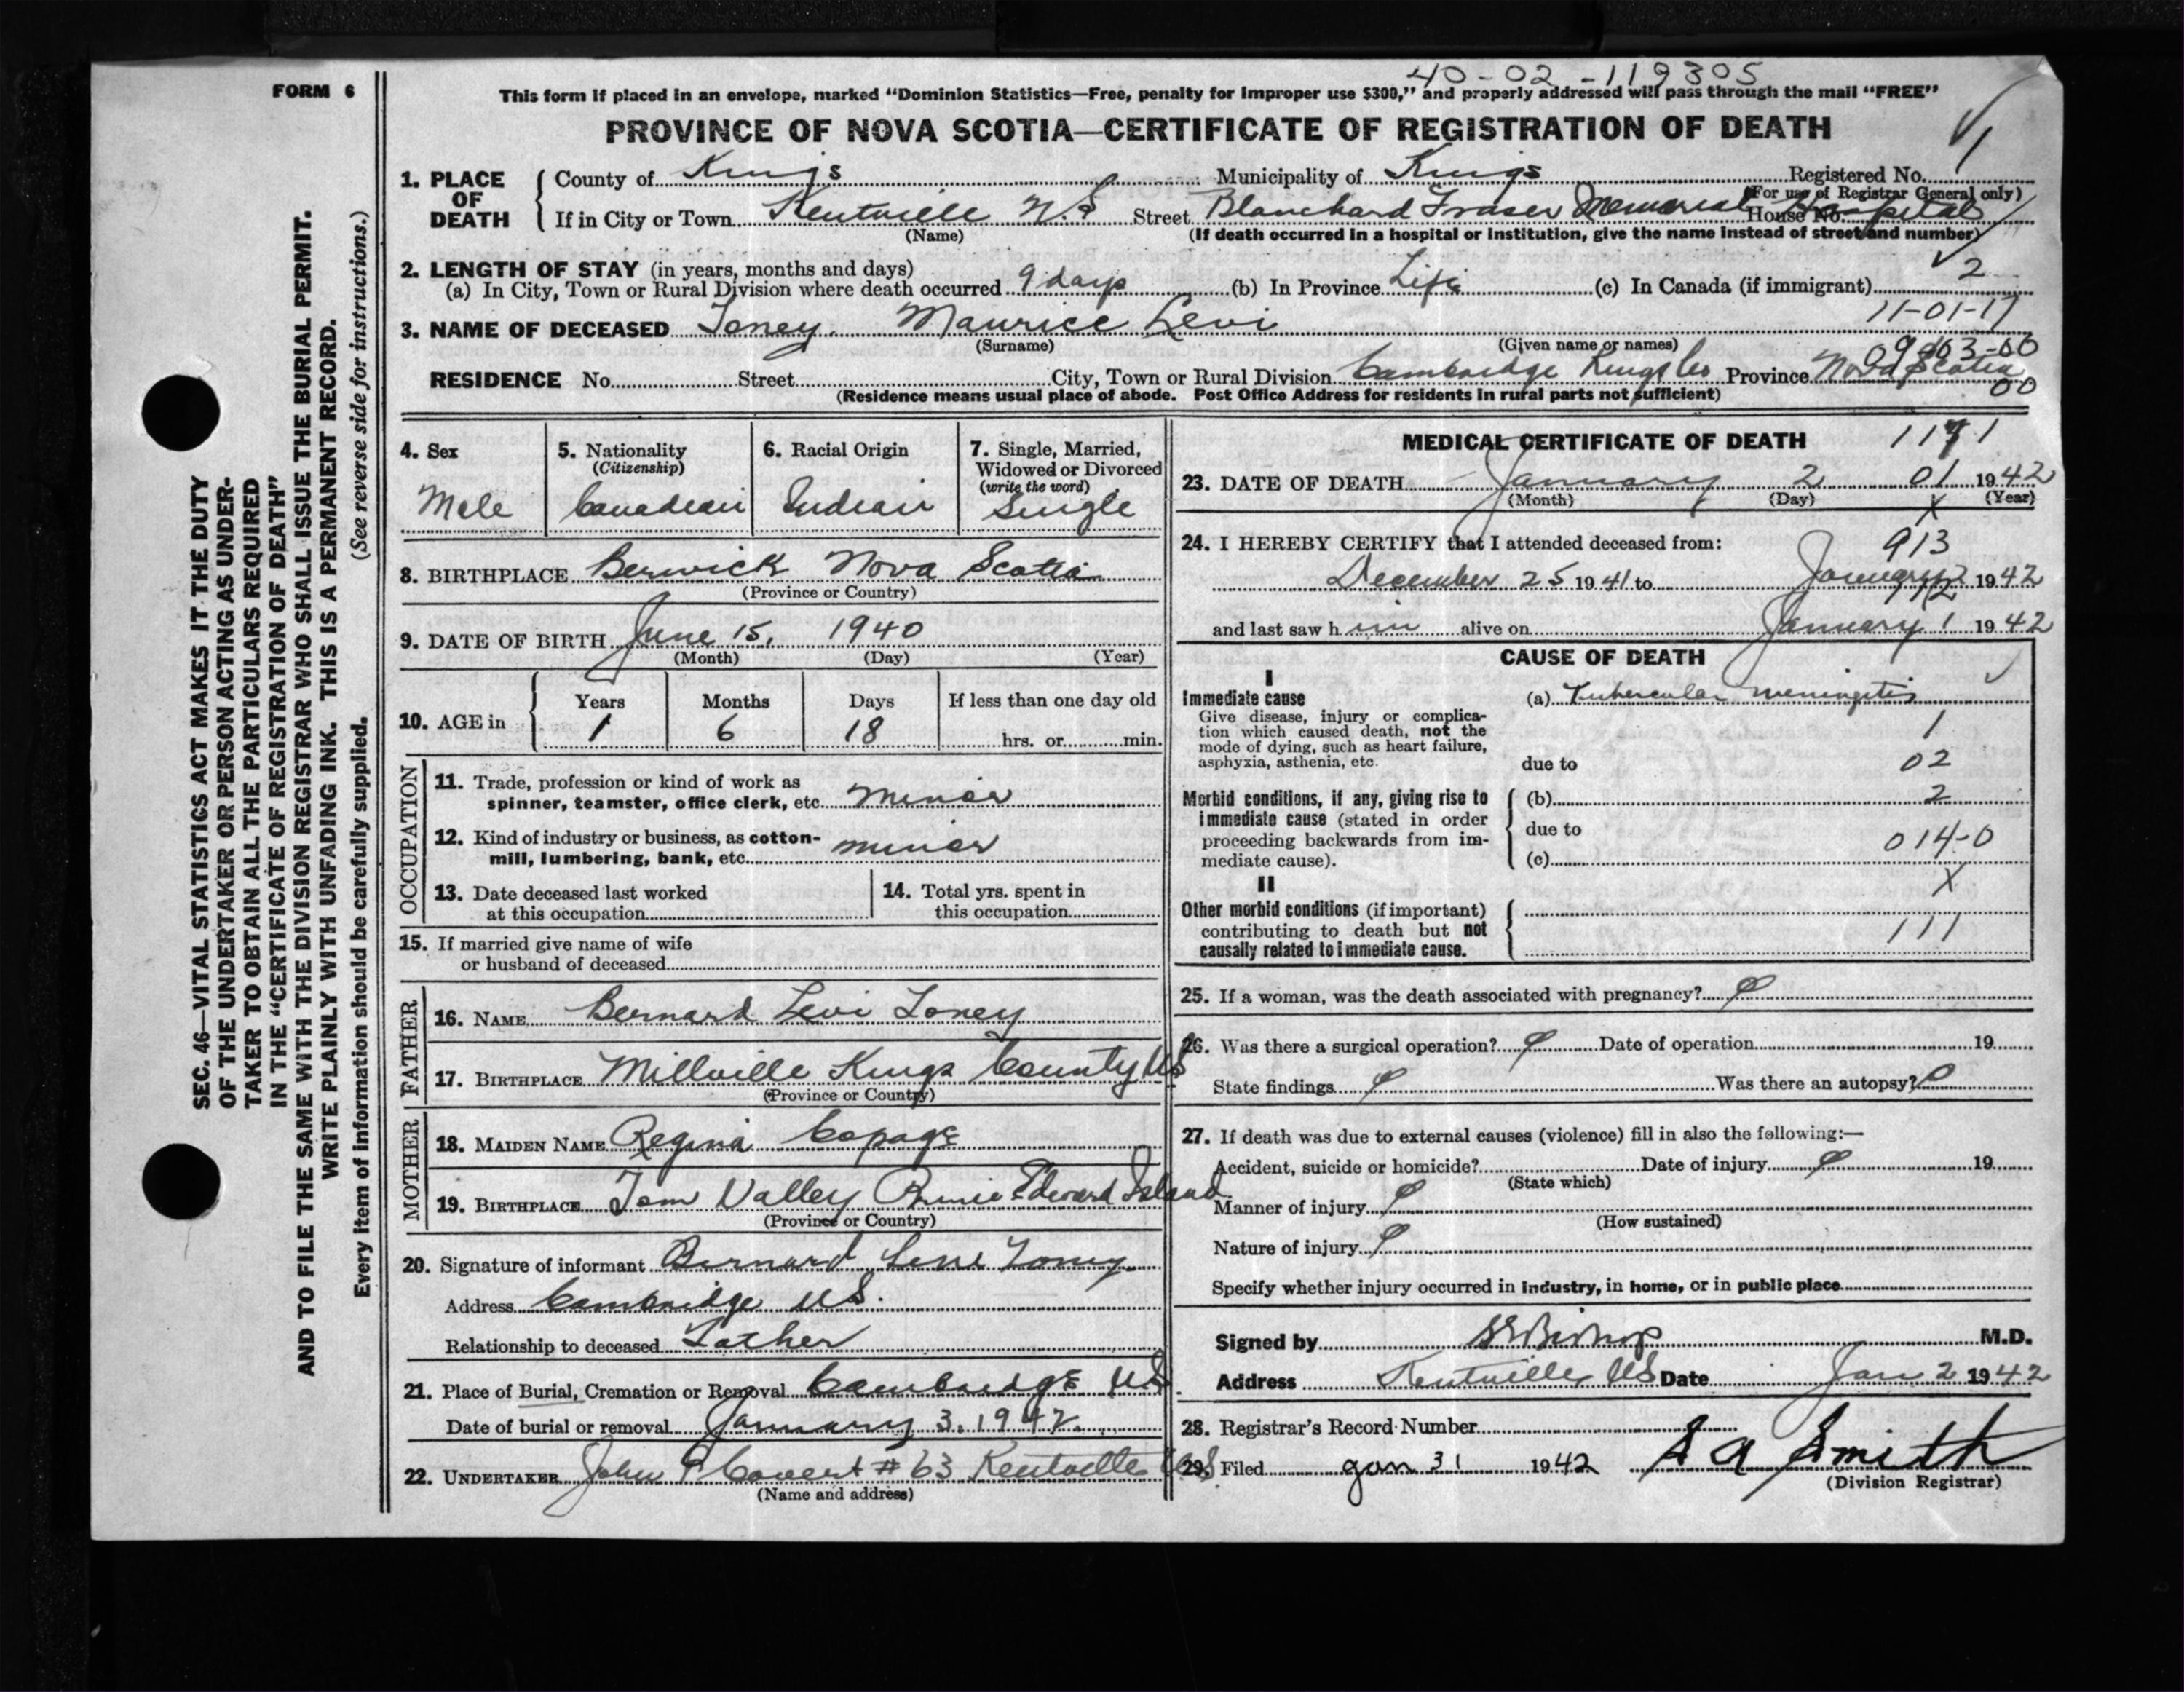 40-02-119305
FORM 6
This form if placed in an envelope, marked "Dominion Statistics—Free, penalty for improper use $300," and properly addressed will pass through the mail "FREE"
PROVINCE OF NOVA SCOTIA—CERTIFICATE OF REGISTRATION OF DEATH
1. PLACE OF DEATH
County of Kings Municipality of Kings Registered No. 1
(For use of Registrar General only)
If in City or Town Kentville N.S Street Blanchard Fraser Memorial Hospital House No.
(Name) (If death occurred in a hospital or institution, give the name instead of street and number)
2. LENGTH OF STAY (in years, months and days)
2
(a) In City, Town or Rural Division where death occurred 9 days (b) In Province Life (c) In Canada (if immigrant)
11-01-17
3. NAME OF DECEASED Toney. Maurice Levi
(Surname) (Given name or names)
RESIDENCE No. Street City, Town or Rural Division Cambridge Kings Co Province Nova Scotia
00
(Residence means usual place of abode. Post Office Address for residents in rural parts not sufficient)
4. Sex
Male
5. Nationality
(Citizenship)
Canadian
6. Racial Origin
Indian
7. Single, Married,
Widowed or Divorced
(write the word)
Single
8. BIRTHPLACE Berwick Nova Scotia
(Province or Country)
9. DATE OF BIRTH June 15, 1940
(Month) (Day) (Year)
10. AGE in
Years Months Days If less than one day old
1 6 18 hrs. or min.
OCCUPATION
11. Trade, profession or kind of work as
spinner, teamster, office clerk, etc. minor
12. Kind of industry or business, as cotton-
mill, lumbering, bank, etc. minor
13. Date deceased last worked
at this occupation
14. Total yrs. spent in
this occupation
15. If married give name of wife
or husband of deceased
FATHER
16. NAME Bernard Levi Toney
17. BIRTHPLACE Millville Kings County NS
(Province or Country)
MOTHER
18. MAIDEN NAME Regina Copage
19. BIRTHPLACE Tom Valley Prince Edward Island
(Province or Country)
20. Signature of informant Bernard Levi Toney
Address Cambridge NS.
Relationship to deceased Father
21. Place of Burial, Cremation or Removal Cambridge NS
Date of burial or removal January 3. 1942.
22. UNDERTAKER John P Covert # 63 Kentville NS
(Name and address)
MEDICAL CERTIFICATE OF DEATH
23. DATE OF DEATH January 2 01 1942
(Month) (Day) (Year)
X
24. I HEREBY CERTIFY that I attended deceased from:
913
December 25 1941 to January 2 1942
and last saw h im alive on January 1 1942
CAUSE OF DEATH
I
Immediate cause (a) Tubercular meningitis
Give disease, injury or complica-
tion which caused death, not the
mode of dying, such as heart failure,
asphyxia, asthenia, etc.
1
due to 02
Morbid conditions, if any, giving rise to
immediate cause (stated in order
proceeding backwards from im-
mediate cause).
(b) 2
due to
014-0
(c)
X
II
Other morbid conditions (if important)
contributing to death but not
causally related to immediate cause.
111
25. If a woman, was the death associated with pregnancy?
26. Was there a surgical operation? Date of operation 19
State findings Was there an autopsy?
27. If death was due to external causes (violence) fill in also the following:—
Accident, suicide or homicide? Date of injury 19
(State which)
Manner of injury
(How sustained)
Nature of injury
Specify whether injury occurred in industry, in home, or in public place
Signed by Bishop M.D.
Address Kentville NS Date Jan 2 1942
28. Registrar's Record Number
29. Filed Jan 31 1942 S A Smith
(Division Registrar)
SEC. 46—VITAL STATISTICS ACT MAKES IT THE DUTY
OF THE UNDERTAKER OR PERSON ACTING AS UNDER-
TAKER TO OBTAIN ALL THE PARTICULARS REQUIRED
IN THE "CERTIFICATE OF REGISTRATION OF DEATH"
AND TO FILE THE SAME WITH THE DIVISION REGISTRAR WHO SHALL ISSUE THE BURIAL PERMIT.
WRITE PLAINLY WITH UNFADING INK. THIS IS A PERMANENT RECORD.
Every item of information should be carefully supplied. (See reverse side for instructions.)